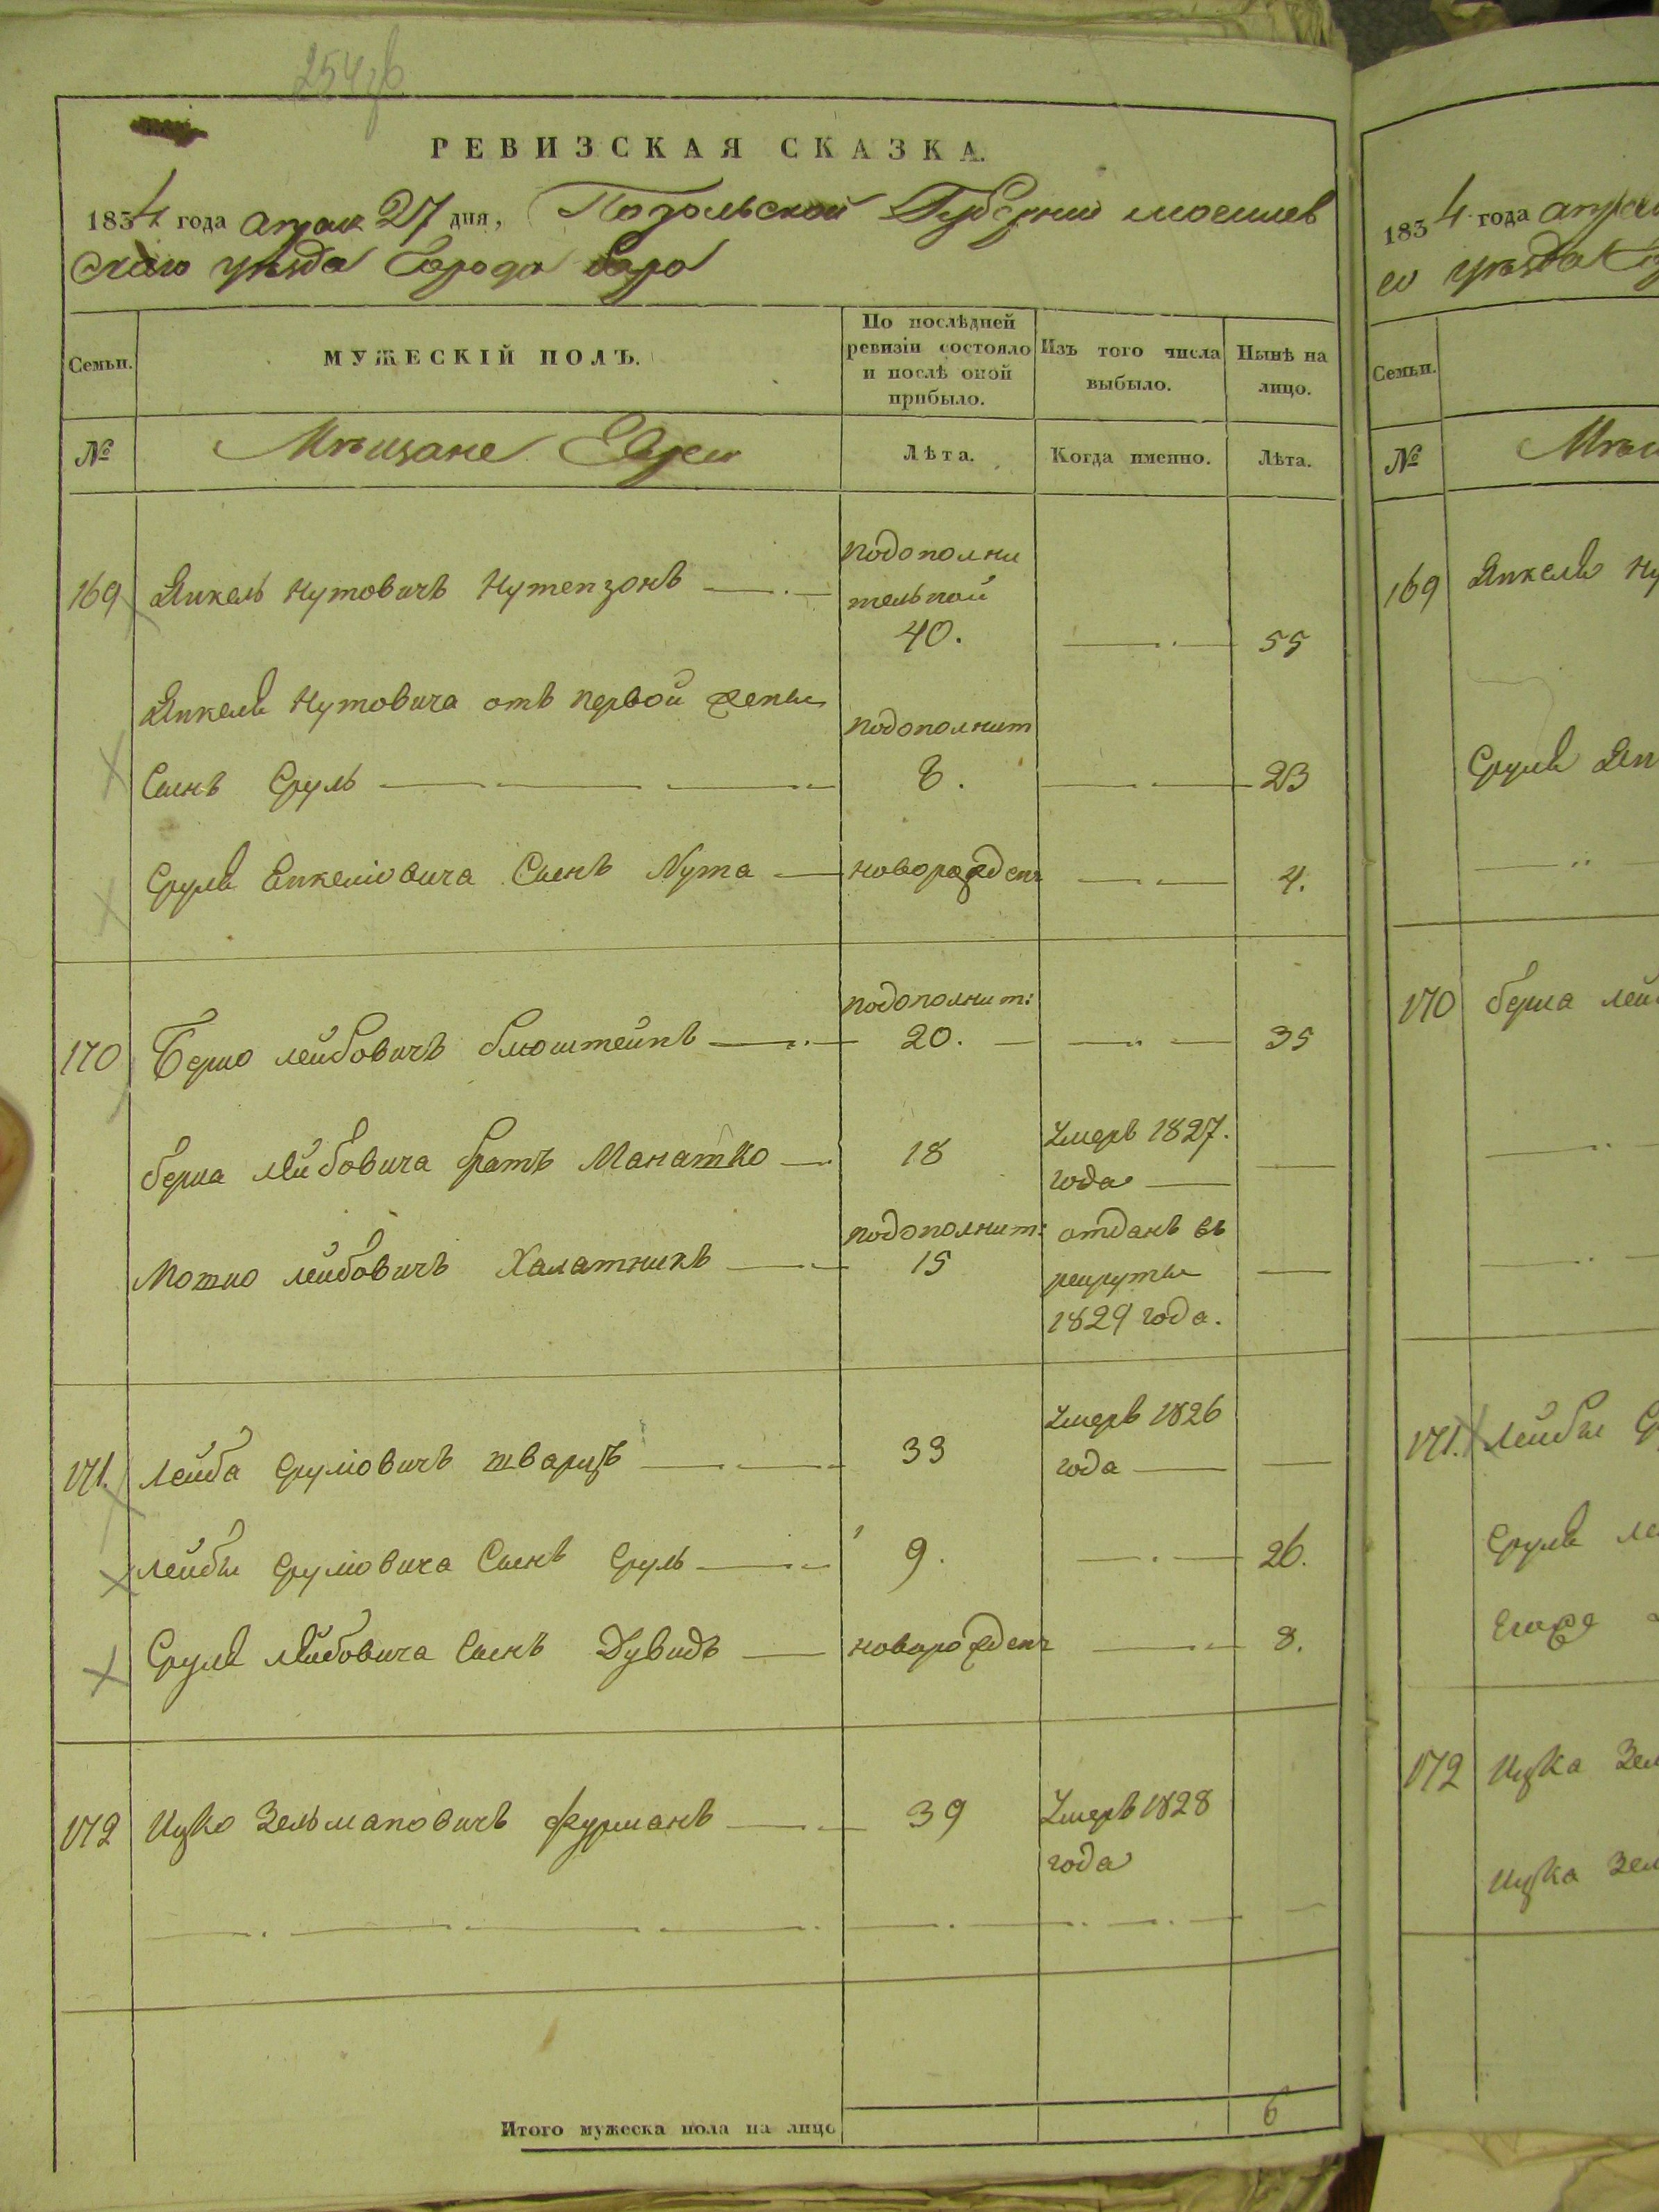 254об
РЕВИЗСКАЯ СКАЗКА.
1834 года апрѣл 27 дня, Подольской Губерніи могилев
скаго уѣзда Города Бара
Семьи.
МУЖЕСКІЙ ПОЛЪ.
По послѣдней ревизіи состояло и послѣ оной прибыло.
Изъ того числа выбыло.
Нынѣ на лицо.
№
Мѣщане Евреи
Лѣта.
Когда именно.
Лѣта.
169 Янкель Нутовичъ Нутензонъ подополни
тельной
40. 55
Янкеля Нутовича отъ первой жены
подополнит
Сынъ Сруль 8. 23
Сруля Янкеліовича Сынъ Нута новорожден 4.
подополнит:
170 Берко лейбовичъ блюштейнъ 20. 35
берка лейбовича братъ Манашко 18 Умеръ 1827.
года
подополнит: отданъ въ
Мошко лейбовичъ Халатникъ 15 рекруты
1829 года.
171. лейба Сруліовичъ шварцъ 33 Умеръ 1826
года
лейбы Сруліовича Сынъ Сруль 9. 26.
Сруля лейбовича Сынъ Дувидъ новорожден 8.
172 Ицко Зельмановичъ фурманъ 39 Умеръ 1828
года
Итого мужеска пола на лицо
6
1834 года апрѣл
го уѣзда
Семьи.
№
169 Янкеля Ну
Сруля Ян
170 берка лей
171. лейбы С
Сруля ле
Егоже
172 Ицка Зел
Ицка Зел